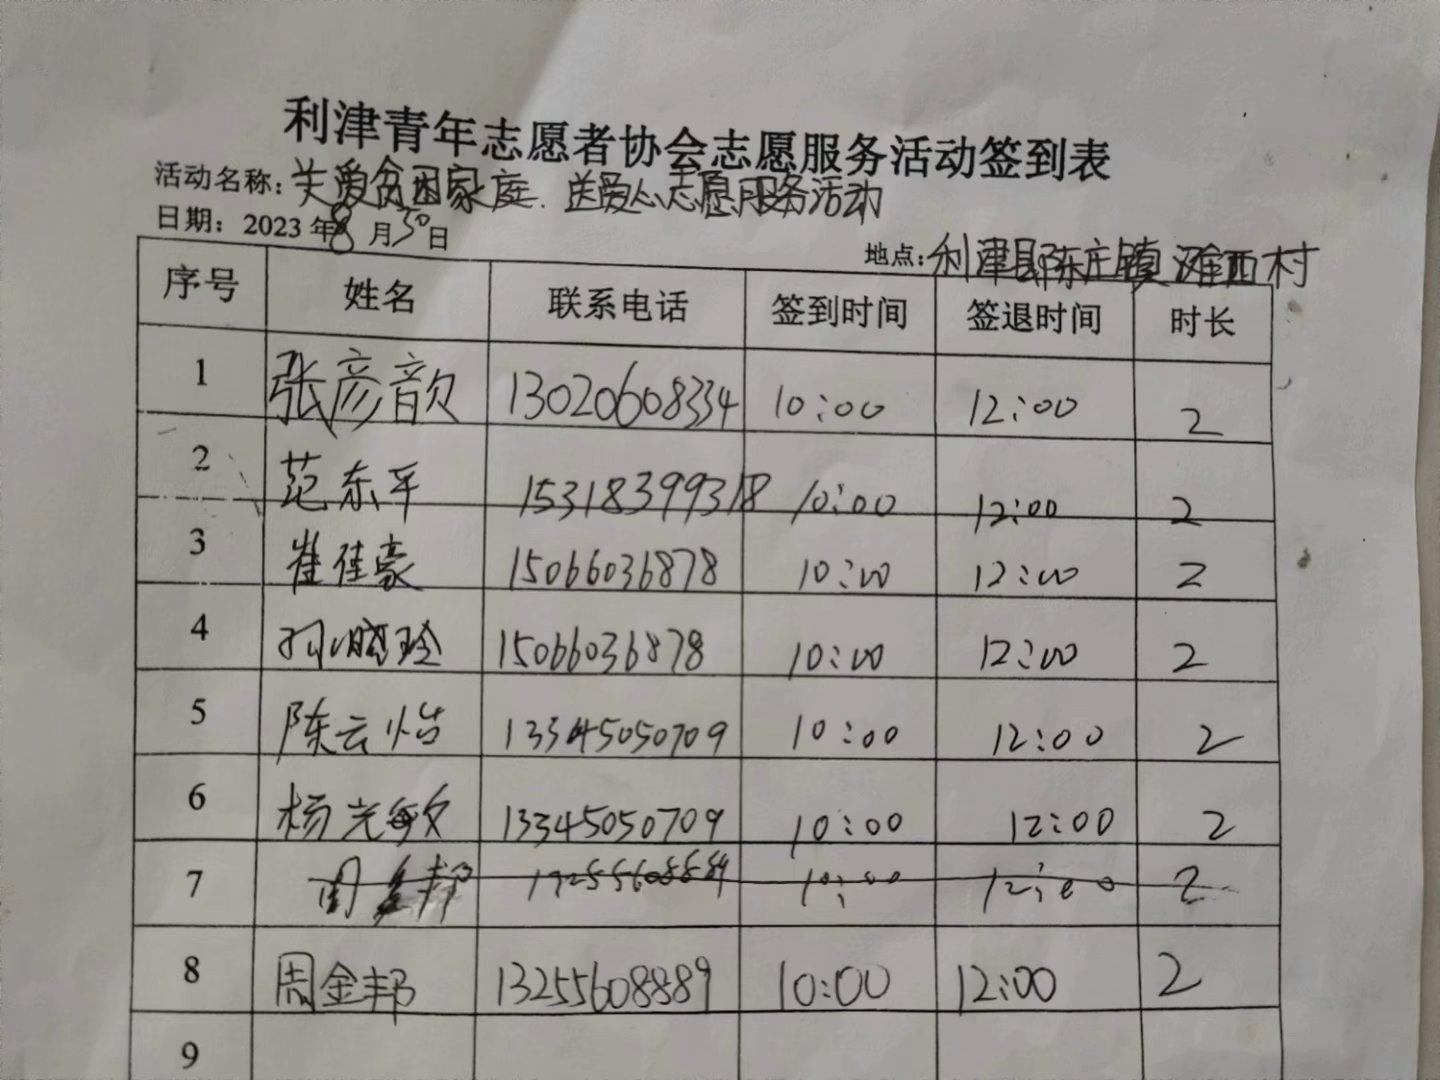 利津青年志愿者协会志愿服务活动签到表
活动名称:关爱贫困家庭.送爱心志愿服务活动
日期:2023年8月30日
地点:利津县陈庄镇滩西村
序号 姓名 联系电话 签到时间 签退时间 时长
1 张彦歆 13020608334 10:00 12:00 2
2 范东平 15318399318 10:00 12:00 2
3 崔佳豪 15066036878 10:00 12:00 2
4 孙晓玲 15066036878 10:00 12:00 2
5 陈云怡 13345050709 10:00 12:00 2
6 杨光敏 13345050709 10:00 12:00 2
7 周金邦 10:00 12:00 2
8 周金邦 13255608889 10:00 12:00 2
9